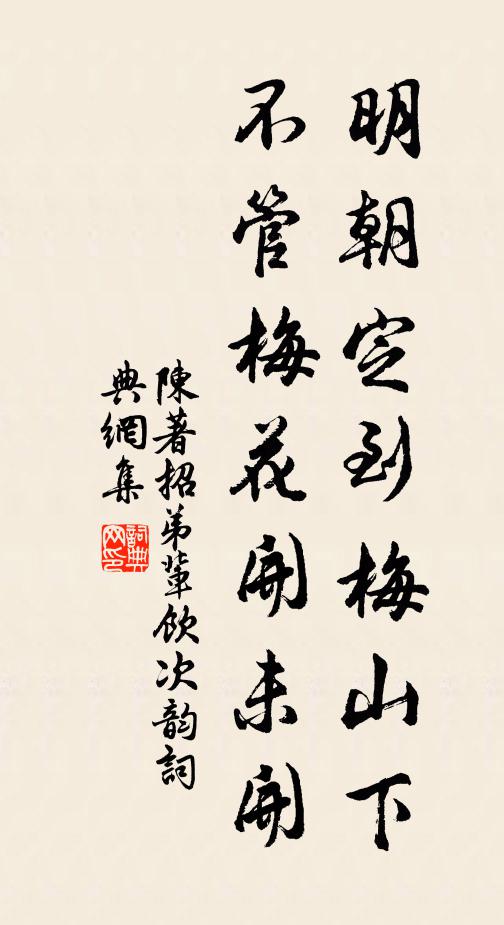 明朝定到梅山下
不管梅花開未開
陳著招弟輩飲次韵詞
典網集
詞典網印